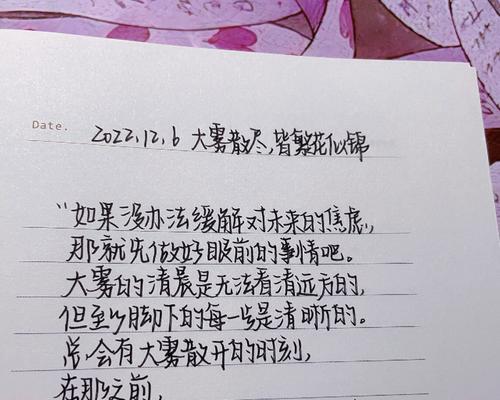 Date. 2022.12.6 大雾散尽,皆繁花似锦
“如果没办法缓解对未来的焦虑,
那就先做好眼前的事情吧。
大雾的清晨是无法看清远方的,
但至少脚下的每一步是清晰的。
总会有大雾散开的时刻,
在那之前,